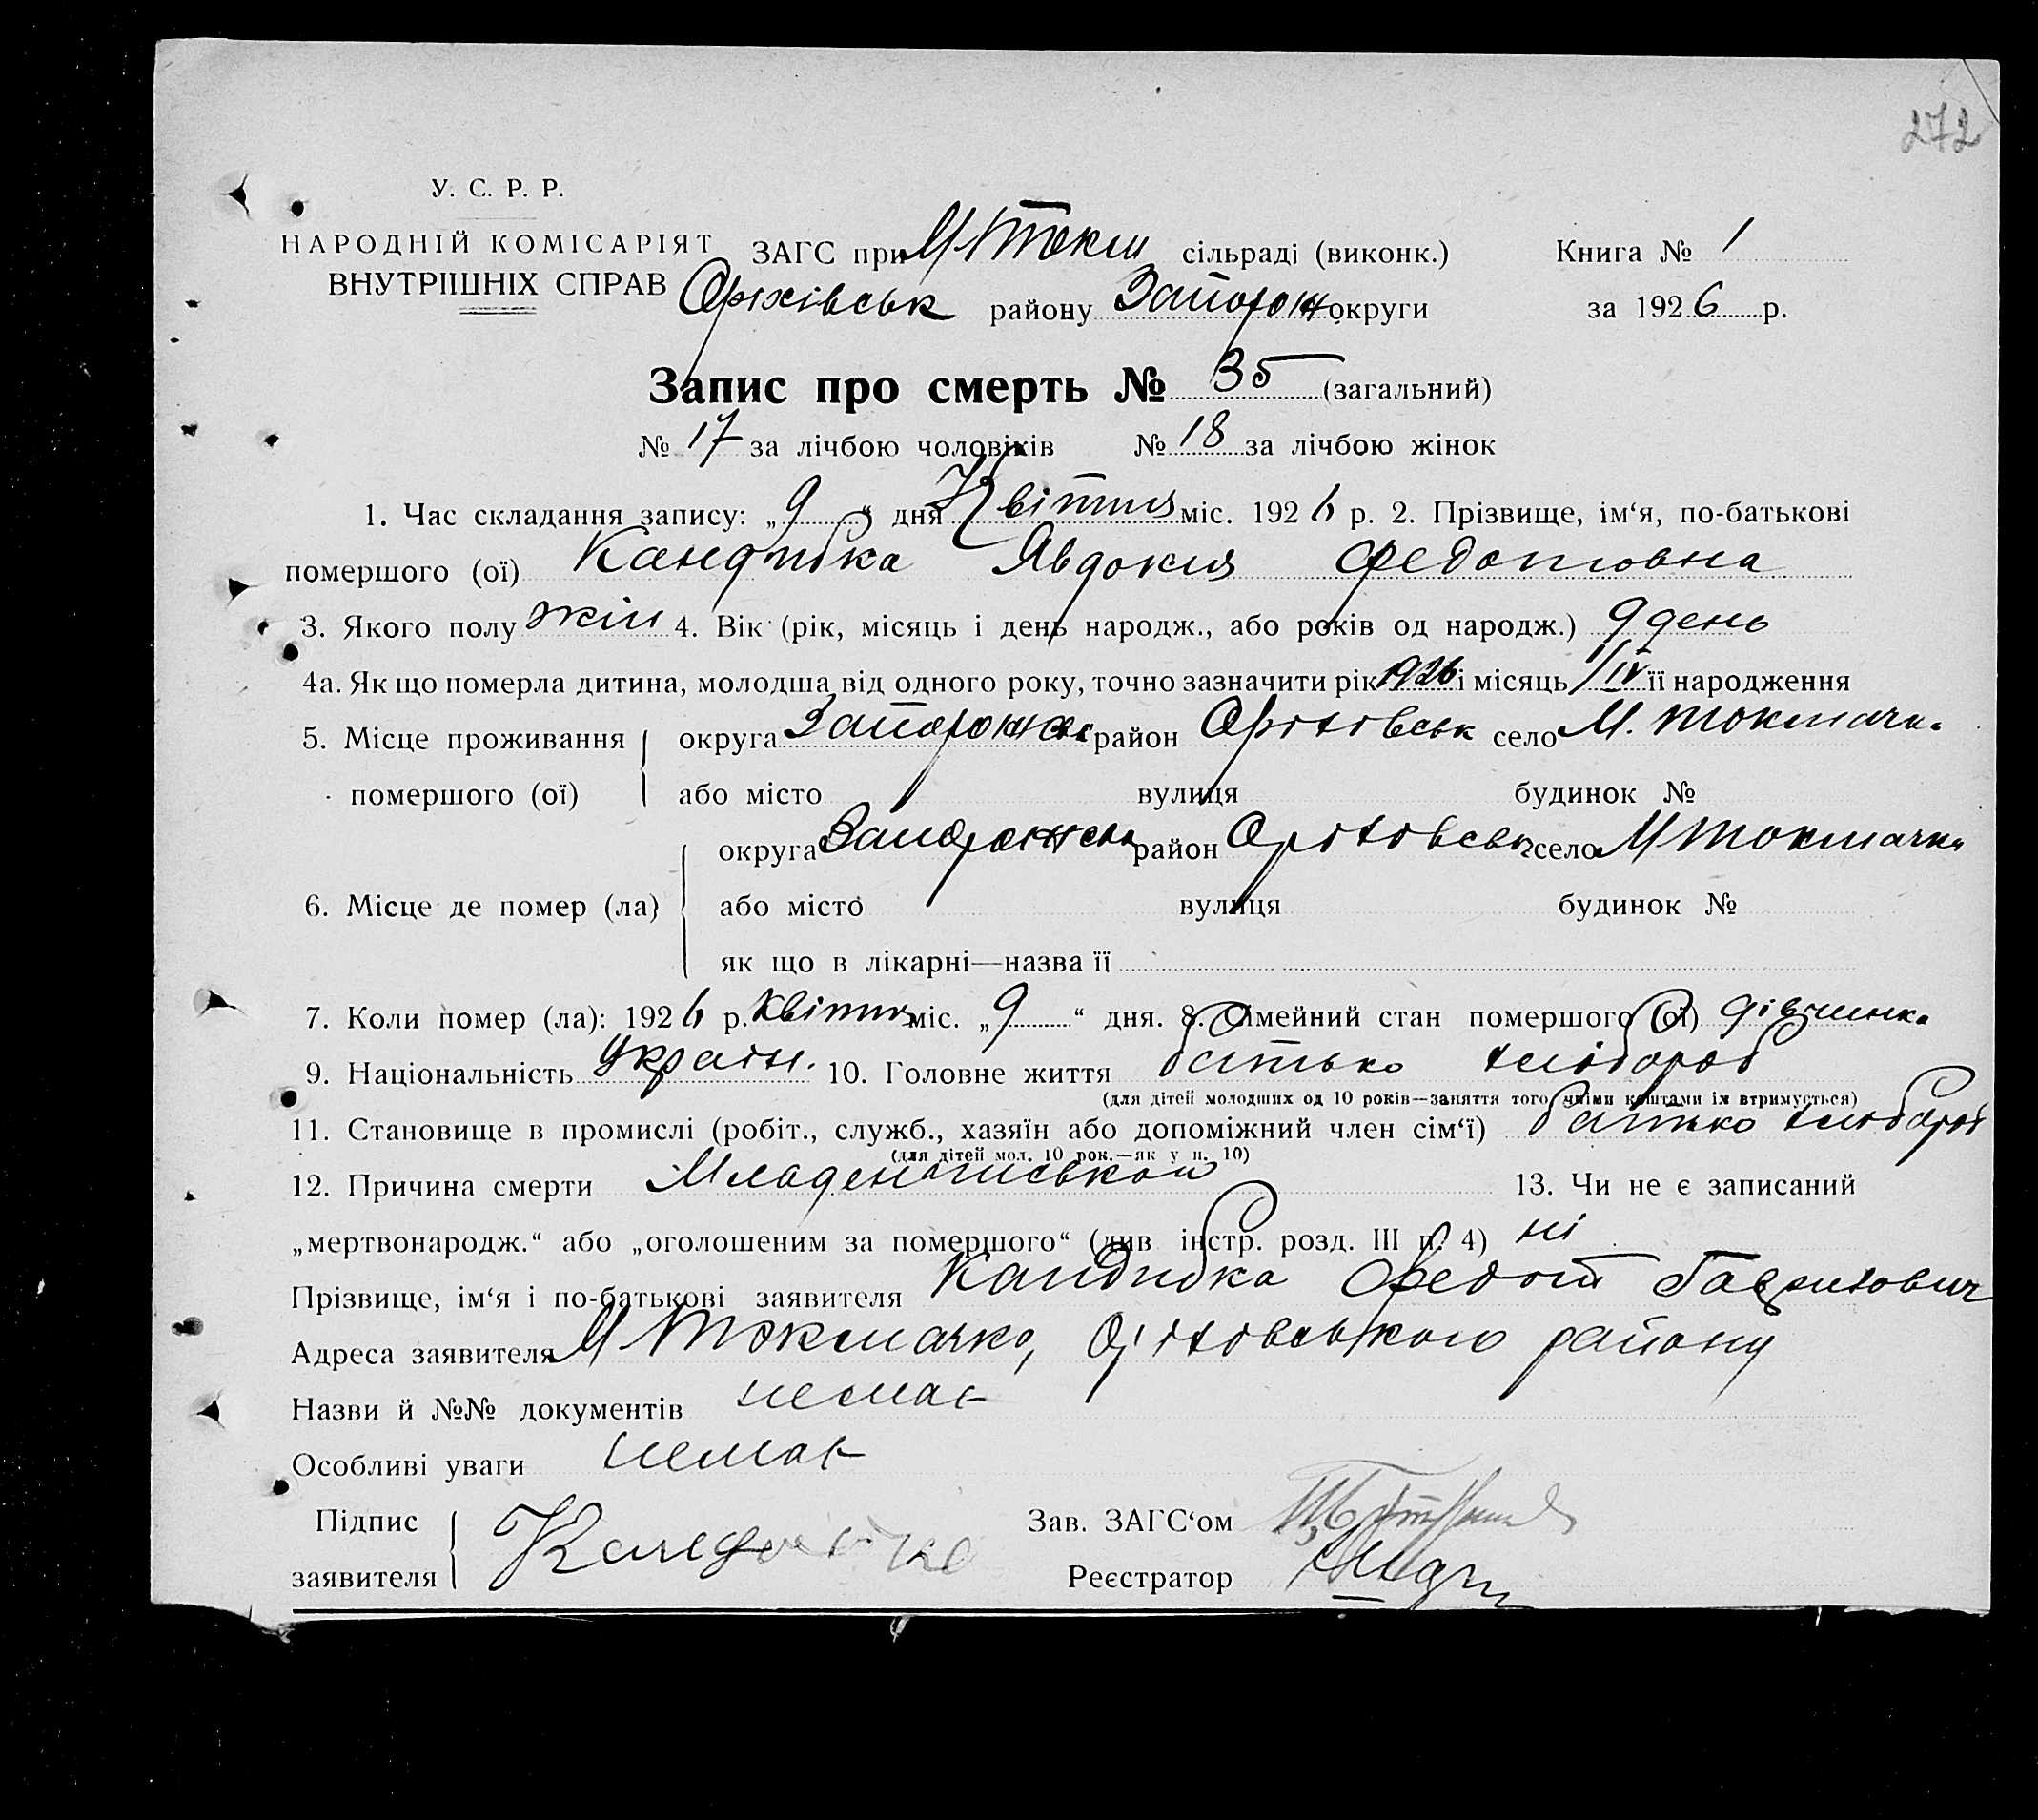 272
У. С. Р. Р.
НАРОДНІЙ КОМІСАРІЯТ ЗАГС при М Токм сільраді (виконк.) Книга № 1
ВНУТРІШНІХ СПРАВ Оріхівськ району Запорож округи за 1926 р.
Запис про смерть № 35 (загальний)
№ 17 за лічбою чоловіків № 18 за лічбою жінок
1. Час складання запису: „9“ дня Квітня міс. 1926 р. 2. Прізвище, ім‘я, по-батькові
помершого (ої) Кандибка Явдокия Федотовна
3. Якого полу жін 4. Вік (рік, місяць і день народж., або років од народж.) 9 день
4а. Як що померла дитина, молодша від одного року, точно зазначити рік 1926 і місяць 1/IV її народження
5. Місце проживання округа Запорожск район Оріхівськ село М. Токмачка
помершого (ої) або місто вулиця будинок №
округа Запорожска район Оріховськ село М Токмачка
6. Місце де помер (ла) або місто вулиця будинок №
як що в лікарні—назва її
7. Коли помер (ла): 1926 р. Квітня міс. „9“ дня. 8. Сімейний стан помершого (ої) дівчинка
9. Національність Україн. 10. Головне життя батько хлібороб
(для дітей молодших од 10 років—заняття того, чиїми коштами їх втримується)
11. Становище в промислі (робіт., служб., хазяїн або допоміжний член сім‘ї) батько хлібороб
(для дітей мол. 10 рок.—як у п. 10)
12. Причина смерти 13. Чи не є записаний
„мертвонародж.“ або „оголошеним за помершого“ (див інстр. розд. III п. 4) ні
Прізвище, ім‘я і по-батькові заявителя Кандибка Федот Гаврилович
Адреса заявителя М Токмачка, Оріховського району
Назви й №№ документів немає
Особливі уваги немає
Підпис Зав. ЗАГС‘ом
заявителя Кандибка Реєстратор